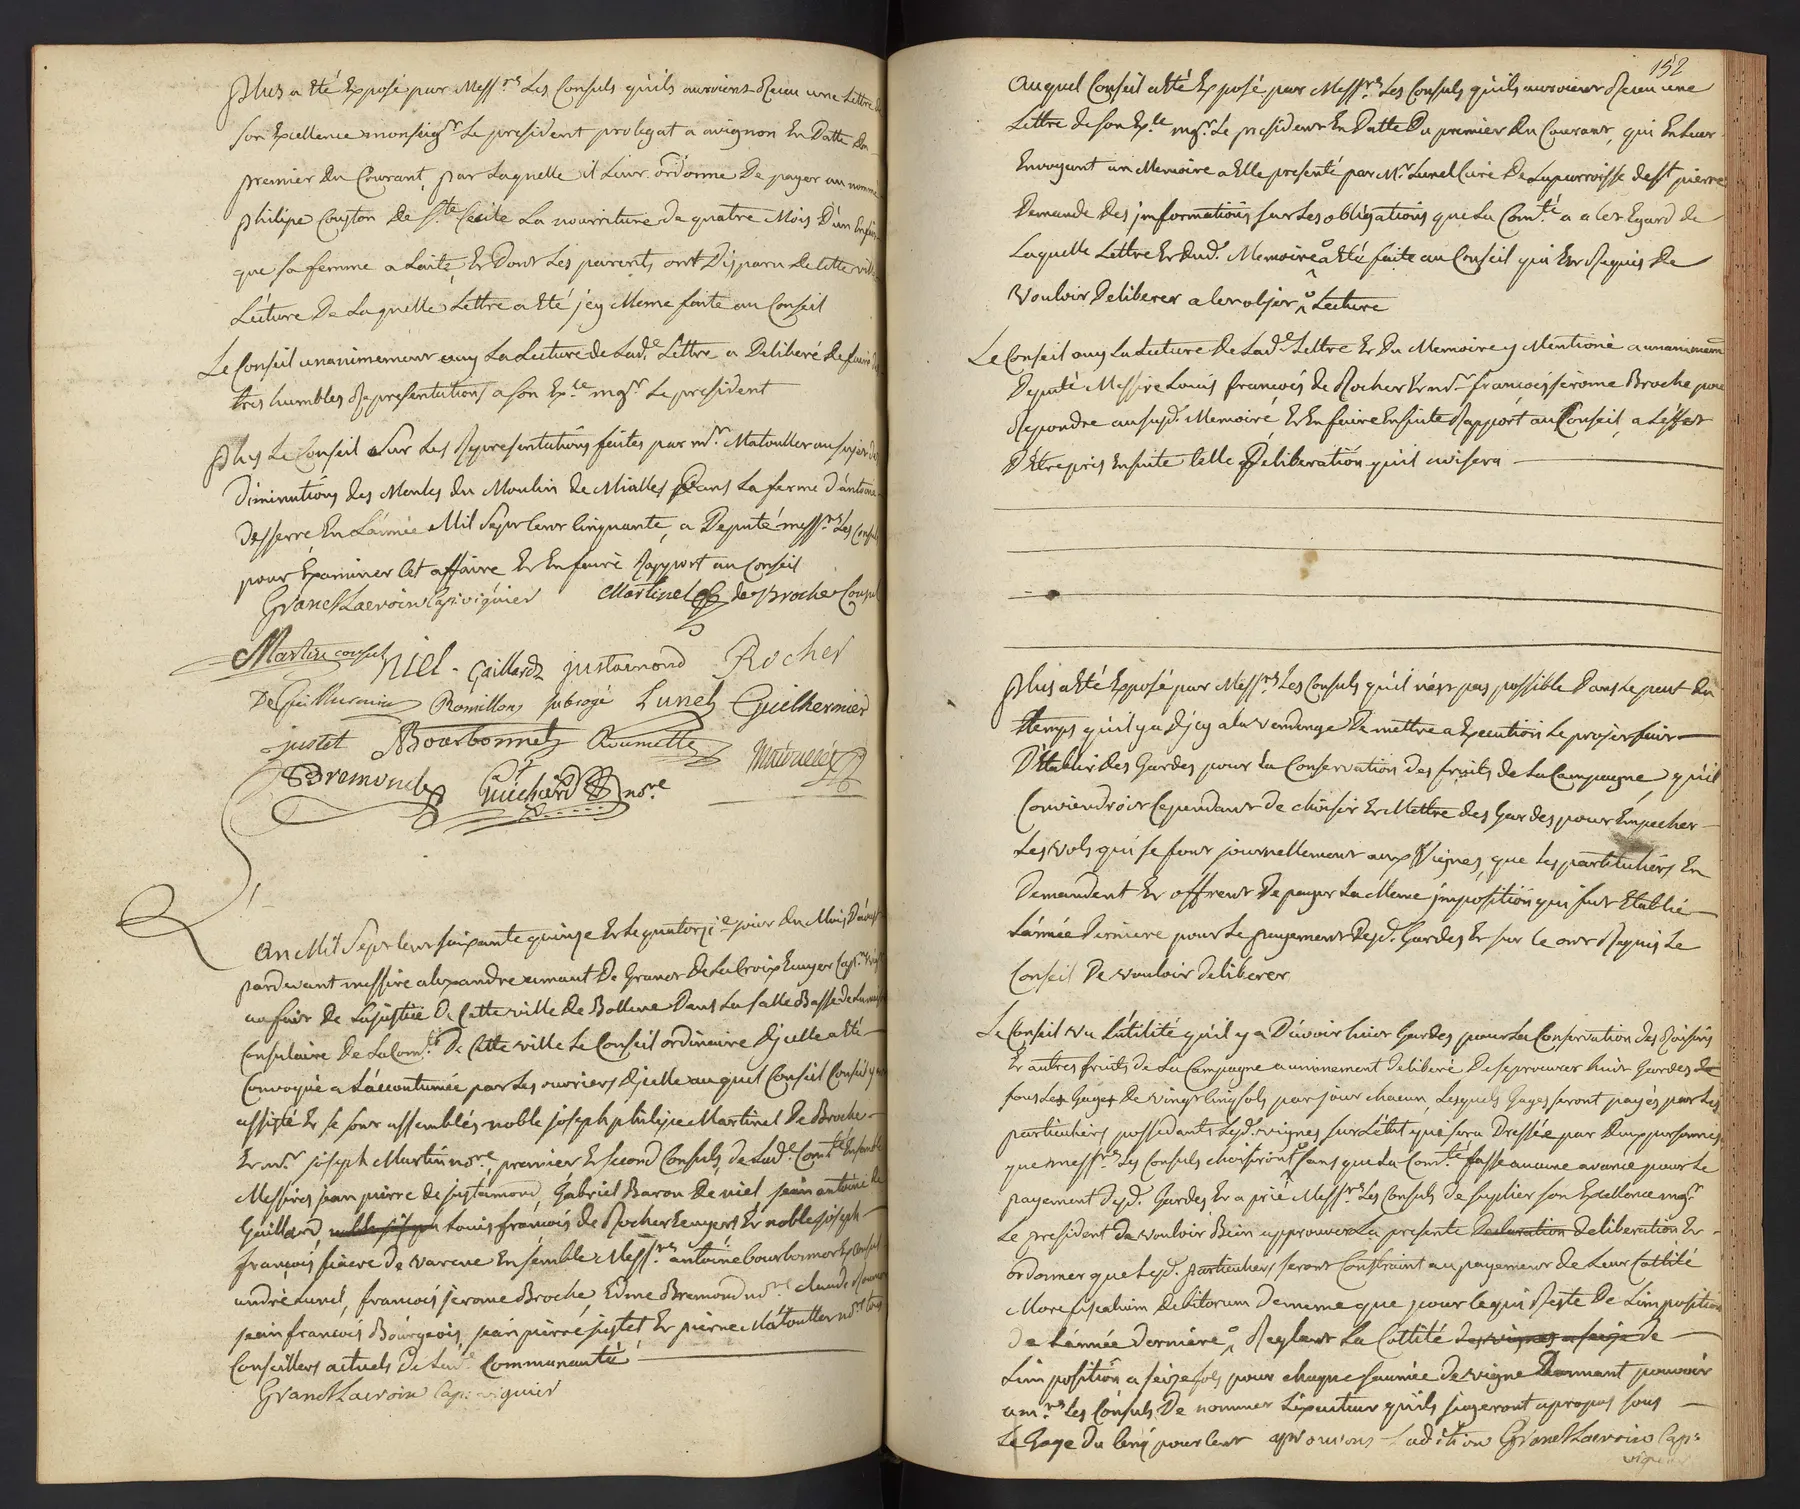 Plus a Eté Exposé par Mess.rs Les Consuls qu'ils auroient Receu une Lettre de
son Excellence monseig.r Le president prolegat a avignon En Datte du
premier du Courant, par Laquelle il Leur ordonne De payer au nommé
philipe Couston de S.te Cecile La nourriture de quatre Mois D'un Enfant
que sa femme a Laité, Et Dont Les parents ont Disparu De Cette ville
Lecture De Laquelle Lettre a Eté jcy Meme faite au Conseil
Le Conseil unanimement ouy La Lecture de Lad.e Lettre a Deliberé De faire de
tres humbles Representations a son Ex.ce mg.r Le president
Plus Le Conseil sur Les Representations faites par m.r Matouller au sujet des
Diminutions des Moutes du Moulin de Mialles Dans La ferme d'antoine
Desserre En L'année Mil Sept Cent Cinquante, a Deputé mess.rs Les Consuls
pour Examiner Cet affaire Et En faire Rapport au Conseil
Granet Lacroix Cap. viguier Martinel de Broche Consul
Martin consul niel Gaillard justamond Rocher
De Guilhermier Romillon subrogé Lunel Guilhermier
justet Bourbonnet Roumette
Bremond Guichard no.re
L'An Mil Sept Cent soixante quinze Et Le quatorz.e jour du Mois D'aoust
pardevant messire alexandre amant De Granet de La Croix Ecuyer Cap.ne vig.r
au fait De La justice De Cette ville De Bollene Dans La salle Basse de La maison
Consulaire De La Com.té De Cette ville Le Conseil ordinaire d'jcelle a Eté
Convoqué a L'accoutumée par Les ouvriers d'jcelle auquel Conseil
assisté Et se sont assemblés noble joseph philipe Martinel De Broche
Et m.r joseph Martin no.re, premier Et second Consuls de Lad.e Com.té Ensemble
Messires jean pierre de justamond, Gabriel Baron De niel jean antoine de
Gaillard, noble joseph Louis françois de Rocher Ecuyers Et noble joseph
françois fiacre de varene Ensemble Mess.rs antoine bourbonnet Exconsul
andré Lunel, françois jerome Broche, Edme Bremond no.re Claude
jean françois Bourgeois, jean pierre justet, Et pierre Matouller no.re tous
Conseillers actuels De Lad.e Communauté
Granet Lacroix Cap. viguier
152
Auquel Conseil a Eté Exposé par Mess.rs Les Consuls qu'ils auroient Receu une
Lettre de son Ex.ce mg.r Le president En Datte Du premier du Courant, qui En Leur
Envoyant un Memoire a Elle presenté par M.r Lunel Curé De La parroisse de St pierre
Demande Des jnformations sur Les obligations que La Com.té a a Cet Egard de
Laquelle Lettre Et Dud. Memoire a Eté faite au Conseil qui Est Requis De
vouloir Deliberer a Cet objet Lecture
Le Conseil ouy La Lecture De Lad.e Lettre Et Du Memoire y Mentioné a unanimement
Deputé Messire Louis françois de Rocher Et m.r françois jerome Broche pour
Repondre au susd. Memoire, Et En faire Ensuite Rapport au Conseil, a L'effet
D'Etre pris Ensuite telle Deliberation qu'il avisera
Plus a Eté Exposé par Mess.rs Les Consuls qu'il n'est pas possible Dans Le peut du
temps qu'il y a d'jcy a La vendange De mettre a Execution Le projet fait
D'Etablir Des Gardes pour La Conservation des fruits de La Campagne, qu'il
Conviendroit Cependant de choisir Et Mettre des Gardes pour Empecher
Les vols qui se font journellement aux Vignes, que Les particuliers En
Demandent Et offrent De payer La Meme jmposition qui fut Etablie
L'année Derniere pour Le payement Desd. Gardes Et sur Ce ont Requis Le
Conseil De vouloir deliberer
Le Conseil vu L'utilité qu'il y a D'avoir huit Gardes pour La Conservation des Raisins
Et autres fruits de La Campagne a unimement deliberé De se procurer huit Gardes
sous Les Gages De vingt Cinq sols par jour chacun, Lesquels Gages seront payés par Les
particuliers possedants Lesd. vignes sur L'Etat qui sera Dressée par Deux personnes
que mess.rs Les Consuls choisiront, sans que La Com.té fasse aucune avance pour Le
payement desd. Gardes, Et a prié Mess.rs Les Consuls de suplier son Excellence mg.r
Le president de vouloir Bien approuver La presente Declaration deliberation Et
ordonner que Lesd. particuliers seront Constraint au payement de Leur Cottité
More fiscalium Debitorum de meme que pour Ce qui Reste De L'imposition
de L'année derniere, Reglant La Cottité des vignes a seize de
L'imposition a seize sols pour chaque saumée de vigne Donnant pouvoir
a m.rs Les Consuls De nommer L'exacteur qu'ils jugeront apropos sous
Le Gage du Cinq pour Cent aprouvons Ladition Granet Lacroix Cap.
viguier